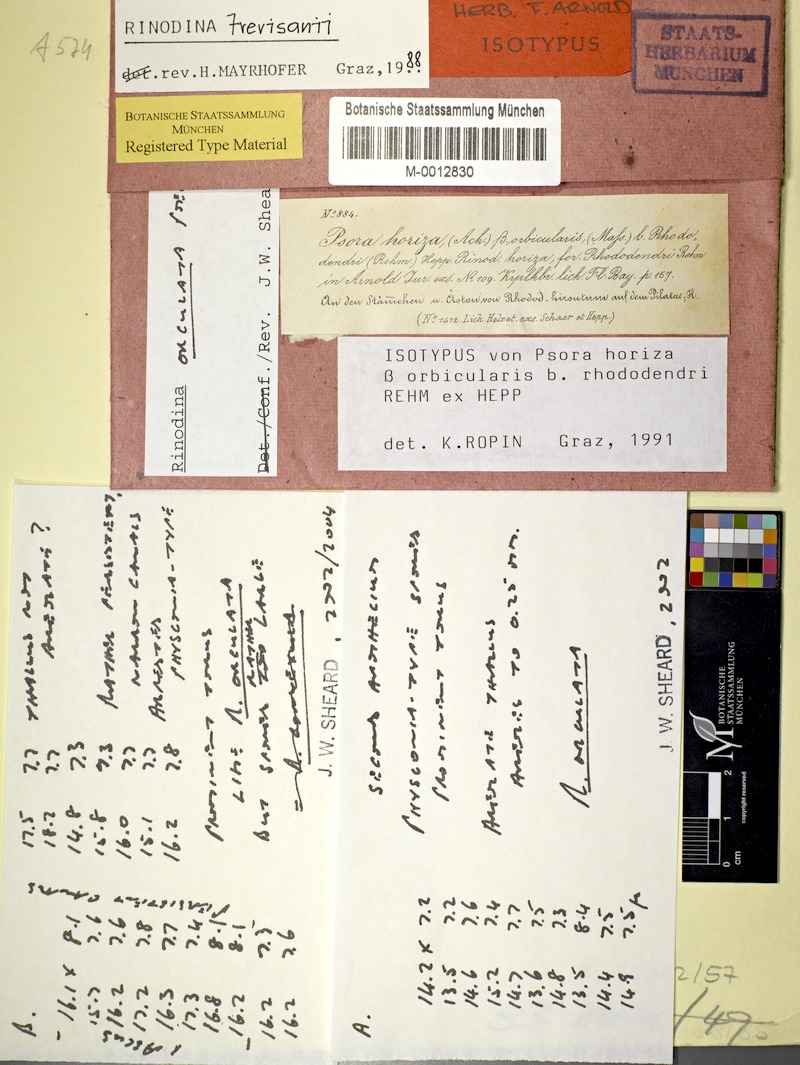 A 574
RINODINA trevisanii
det. rev. H. MAYRHOFER Graz, 1988
HERB. F. ARNOLD
ISOTYPUS
STAATS-
HERBARIUM
MÜNCHEN
BOTANISCHE STAATSSAMMLUNG
MÜNCHEN
Registered Type Material
Botanische Staatssammlung München
M-0012830
Rinodina ORCULATA
Det./Conf./Rev. J.W. Shea
No 884.
Psora horiza, (Ach.) β. orbicularis, (Mass.) b. Rhodo-
dendri (Rehm.) Hepp. Rinod. horiza, for. Rhododendri Rehm
in Arnold Jur. exs. No 109. Krplhbr. lich. Fl. Bay. p. 157.
An den Stämchen u. Ästen von Rhodod. hirsutum auf dem Pilatus. H.
(No 1412. Lich. Helvet. exs. Schaer et Hepp.)
ISOTYPUS von Psora horiza
β orbicularis b. rhododendri
REHM ex HEPP
det. K.ROPIN Graz, 1991
B.
16.1 x 8.1
15.7 7.6
16.2 7.6
17.2 7.8
16.3 7.7
17.3 7.4
16.8 8.1
16.2 8.1
16.2 7.3
16.2 7.6
17.5 7.7
18.2 7.7
14.8 7.3
15.8 7.3
16.0 7.7
15.1 7.7
16.2 7.8
THALLUS NOT
AREOLATE?
RATHER PERSISTENT,
NARROW CANALS
ARRESTED
PHYSCONIA-TYPE
PROMINENT TORUS
LIKE R. ORCULATA
RATHER
BUT SPORES TOO LARGE
J. W. SHEARD, 2002/2004
A.
14.2 x 7.2
13.5 7.2
14.6 7.6
15.2 7.4
14.7 7.7
13.6 7.5
14.8 7.3
13.5 8.4
14.4 7.5
14.9 7.5 μ
SECOND APOTHECIUM
PHYSCONIA-TYPE SPORES
PROMINENT TORUS
AREOLATE THALLUS
AREOLES TO 0.25 mm.
R. ORCULATA
J. W. SHEARD, 2002
BOTANISCHE
STAATSSAMMLUNG
MÜNCHEN
0 1 2
cm
copyright reserved
2/57
/49